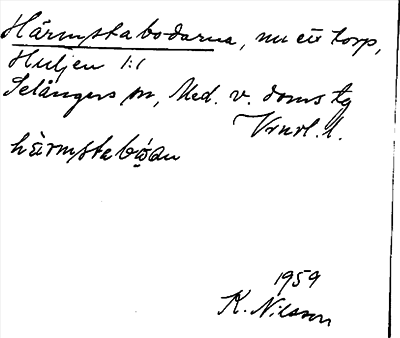 Härmstabodarna, nu ett torp,
Huljen 1:1
Selångers sn, Med. v. doms tg
Vnrl. l.
härmstabọ̈an
1959
K. Nilsson